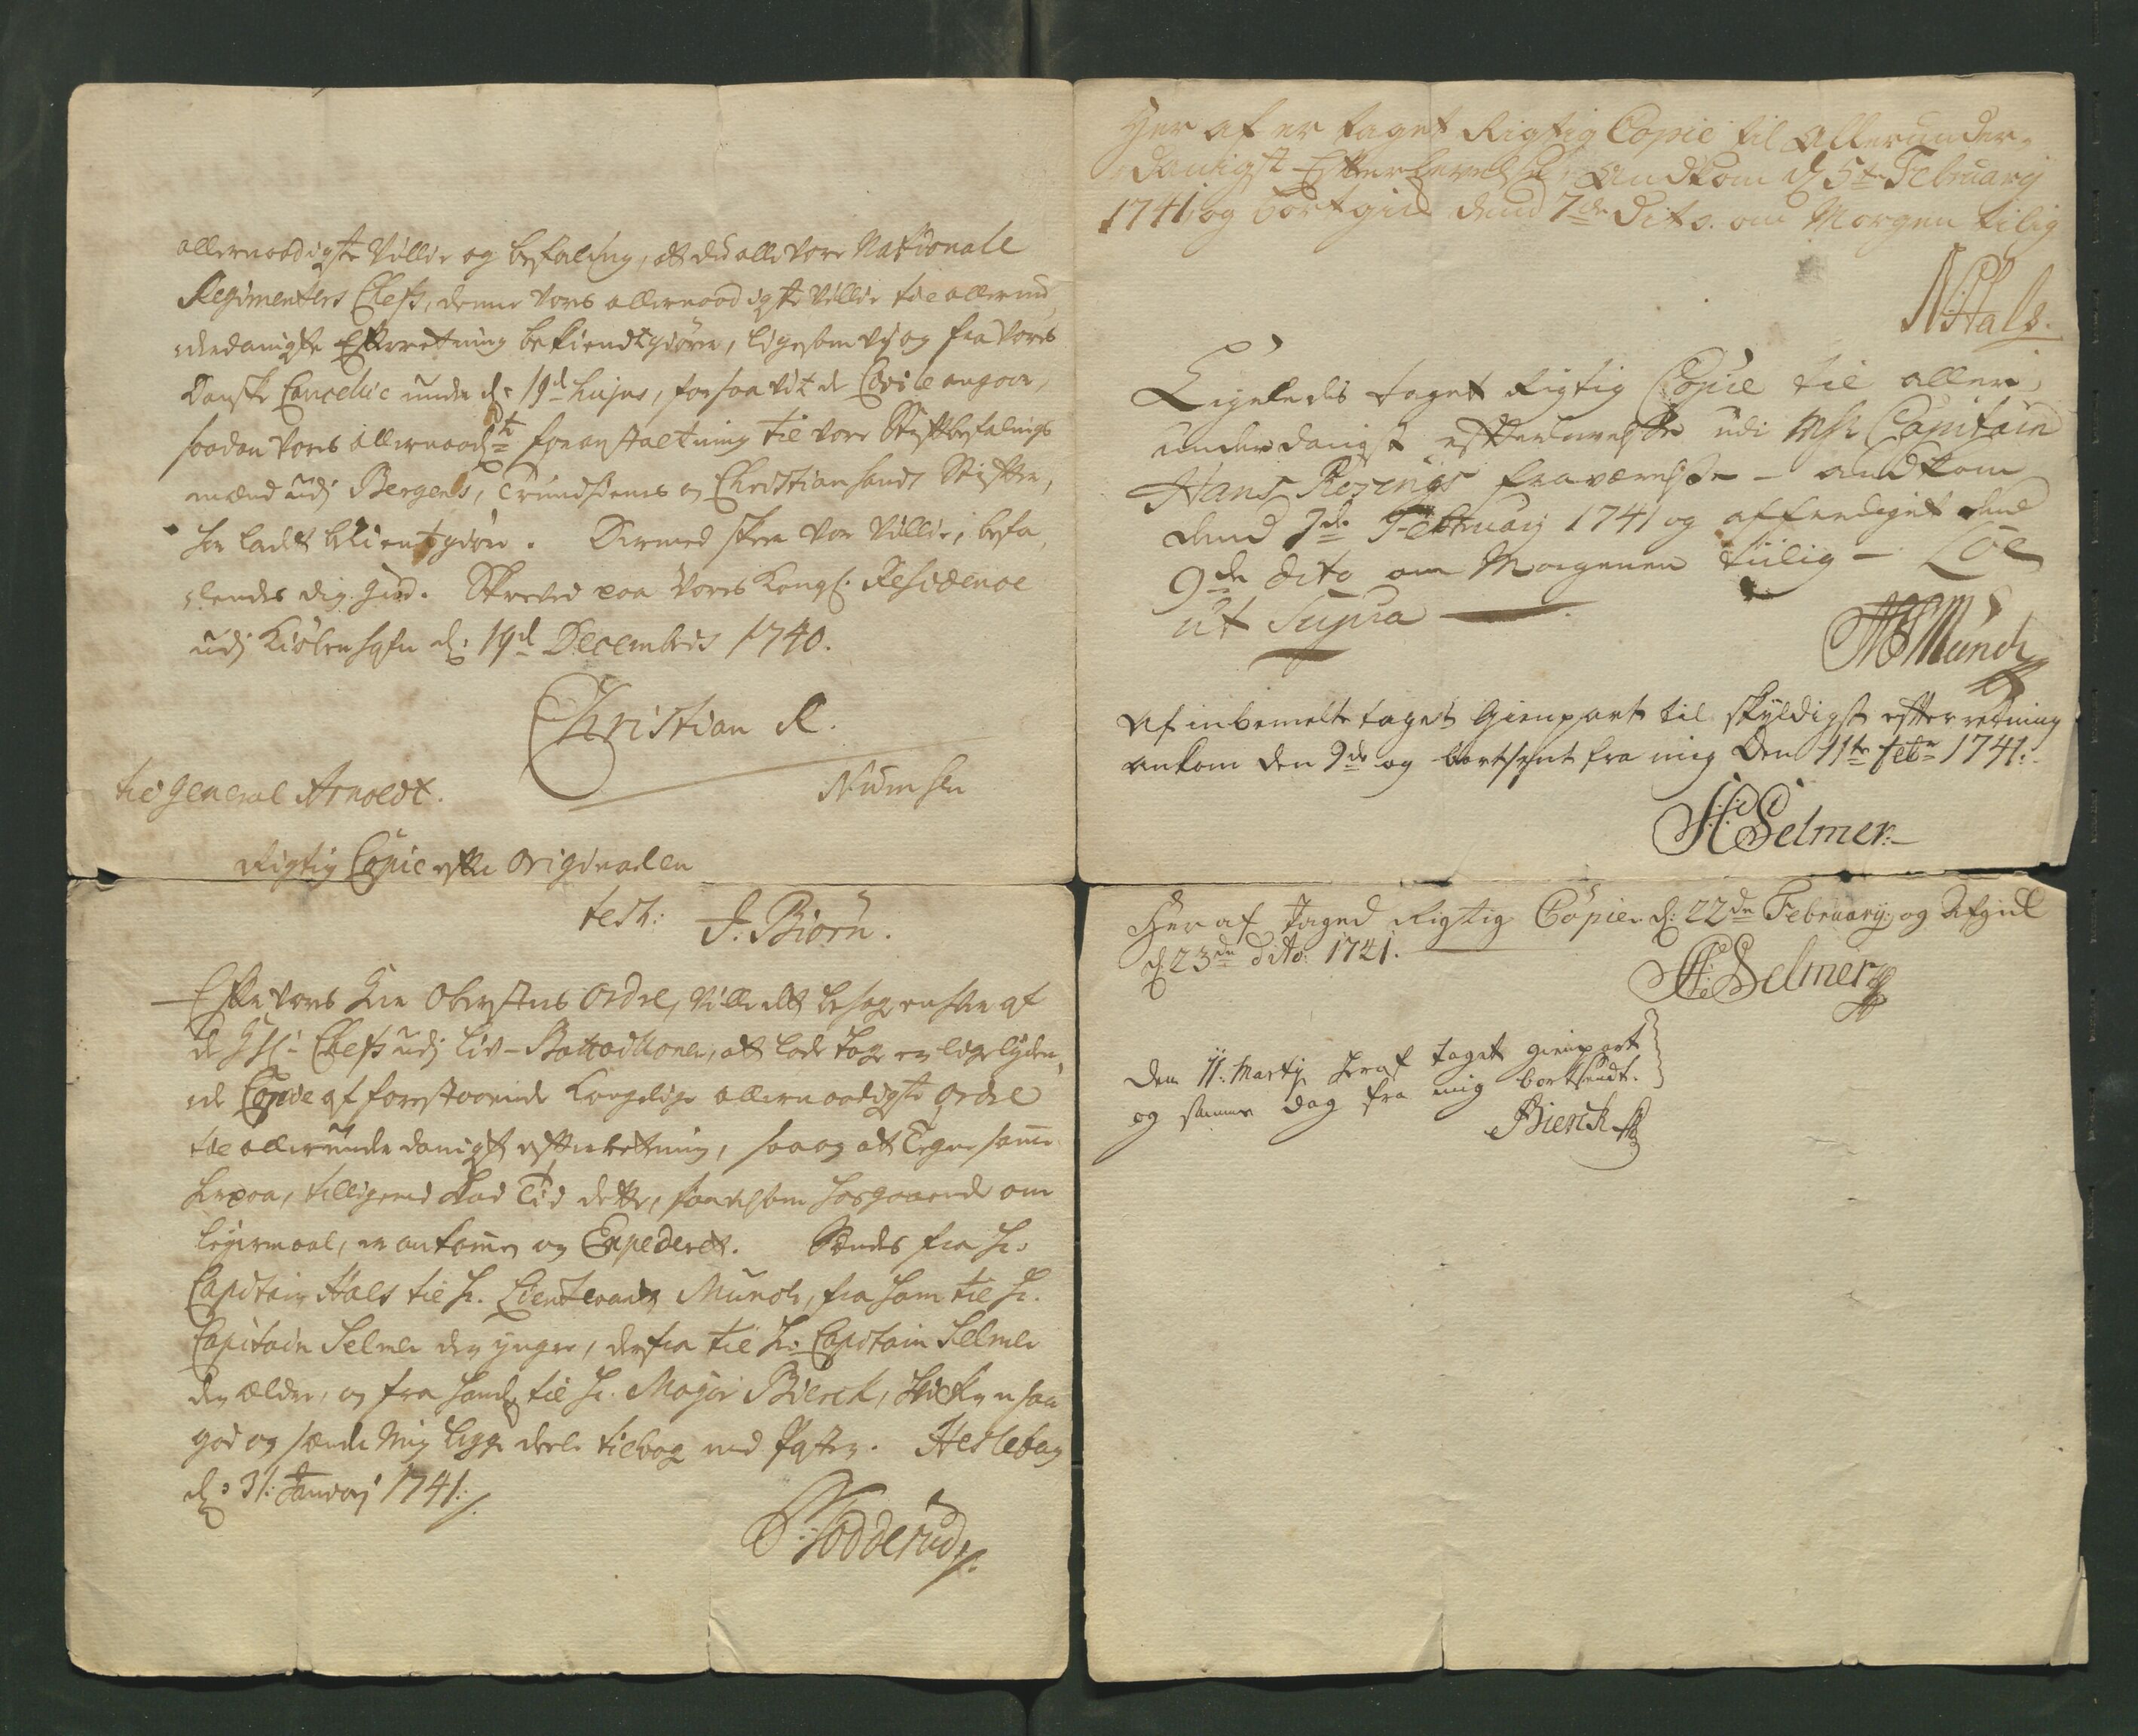 allernaadigste Villie og befaling, att du alle Vore Nationale
Regimenters Chefs, denne Vores allernaadigste Villie til allerun¬
derdanigste Efterretning bekiendtgiører, ligesom vi og fra Vores
Danske Cancellie under d: 19d hujus, forsaavit de Civile angaar,
saadan Vores allernaadste foranstaltning til Vore Stiftbefalings
mænd udj Bergens, Trundhiems og Christiansands Stifter,
har ladet bekientgiøre. Dermed skeer Vor Villie, befa¬
lendes dig Gud. Skrevet paa Vores Kongl: Residence
udj Kiøbenhafn d: 19d Decembris 1740.
Christian R.
Numsen
til General Arnoldt.
Rigtig Copie efter Originalen
test: J. Biørn.
Efter Vores Herr Oberstes Ordre, Ville att behage enhver af
de Hrr: Chefs udj Liv-Battaillonen, att lade tage en ligelyden¬
de Copie af forestaaende Kongelige allernaadigste Ordre
til allerunderdanigst efterretning, saa og att Tegne samme
herpaa, tilligemed hvad Tid dette, saavelsom hosgaaende om
leyermaal, er ankommen og Expederet. Sendes fra Hr.
Capitain Hals til Hr. Lieutenant Munch, fra ham til Hr.
Capitain Selmer den yngre, derfra til Hr: Capitain Selmer
den ældre, og fra ham til Hr. Major Bierck, hvilken saa
god og sende mig begge deele tilbage med Posten.
d: 31: Januarj 1741:
Her af er taget Rigtig Copie til Allerunder¬
danigst Efterlevelse, Andkom d 5te February
1741, og bortgik dend 7de dito. om Morgen tilig
N Hals.
Ligeledis taget Rigtig Copie til aller¬
underdanigst efterlevelse udi Msr Capitain
Hans fraværelse - andkom
dend 7de Februarj 1741 og affærdiget dend
9de dito om Morgenen tiilig -
ut Supra
Munch
Af inbemelte taget Gienpart til skyldigst efterretning
ankom den 9de og bortsent fra mig Den 11te febr 1741:
H Selmer.
Her af Taged Rigtig Copie d: 22de February, og Afgik
d: 23de dito: 1741.
Selmer
Den 11: Martij heraf taget gienpart
og samme dag fra mig bortsendt.
Bierck